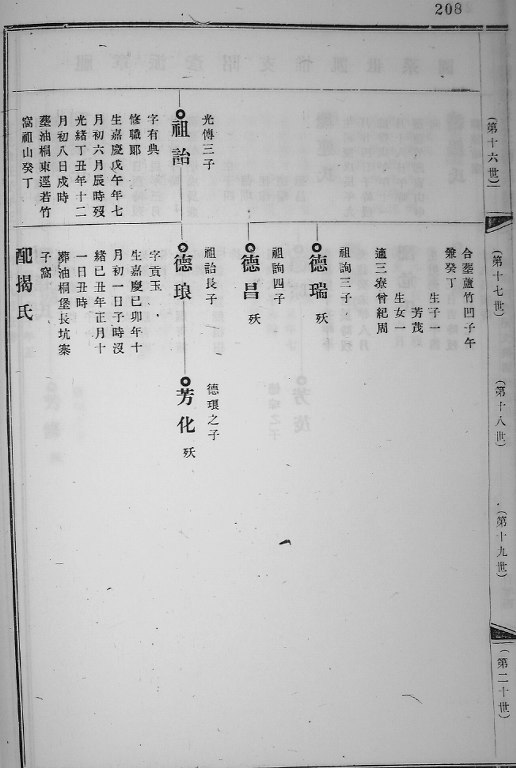 208
(第十六世)
(第十七世)
(第十八世)
(第十九世)
(第二十世)
光傳三子
祖詒
字有典
修職郎
生嘉慶戊午年七
月初六月辰時歿
光緒丁丑年十二
月初八日戌時
塟油桐東逕若竹
窩祖山癸丁
合塟蘆竹凹子午
兼癸丁
生子一
芳茂
生女一
適三寮曾紀周
祖詢三子
德瑞 殀
祖詢四子
德昌 殀
祖詒長子
德琅
字貢玉
生嘉慶己卯年十
月初一日子時沒
緒己丑年正月十
一日丑時
葬油桐堡長坑寨
子窩
配揭氏
德琅之子
芳化 殀